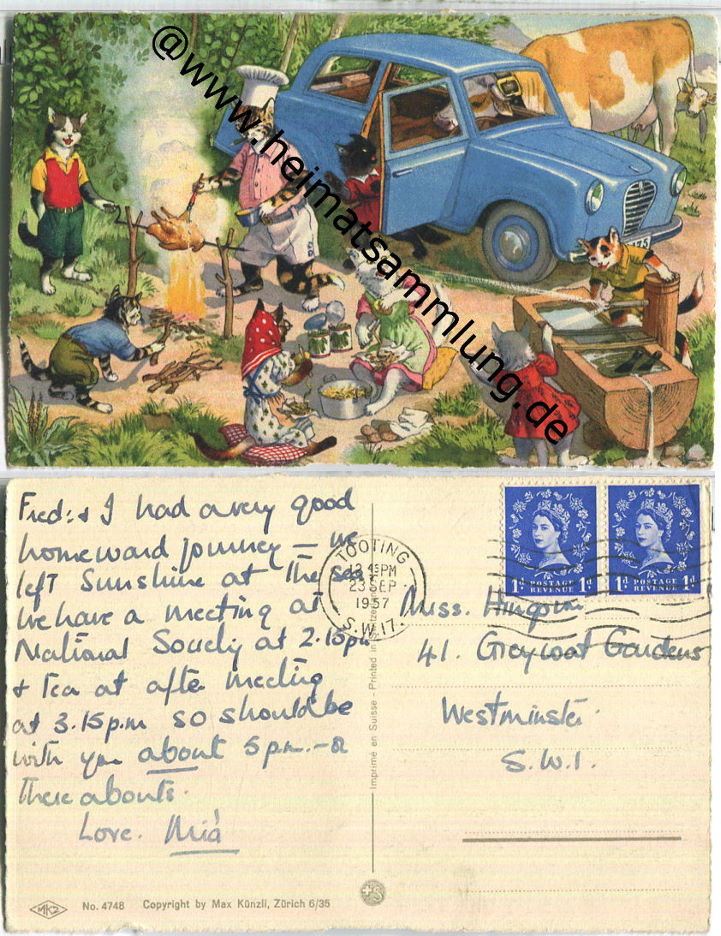 @www.heimatsammlung.de
Fred: & I had a very good
homeward journey — we
left Sunshine at the sea
We have a meeting at
National Society at 2.15pm
& Tea at after meeting
at 3.15p.m so should be
with you about 5 p.m. - or
There abouts.
Love. Mia
TOOTING
PM
23 SEP
1957
S.W.17.
1d POSTAGE REVENUE 1d
1d POSTAGE REVENUE 1d
Miss.
41. Greycoat Gardens
Westminster.
S.W.1.
Imprimé en Suisse - Printed in
MKZ No. 4748 Copyright by Max Künzli, Zürich 6/35